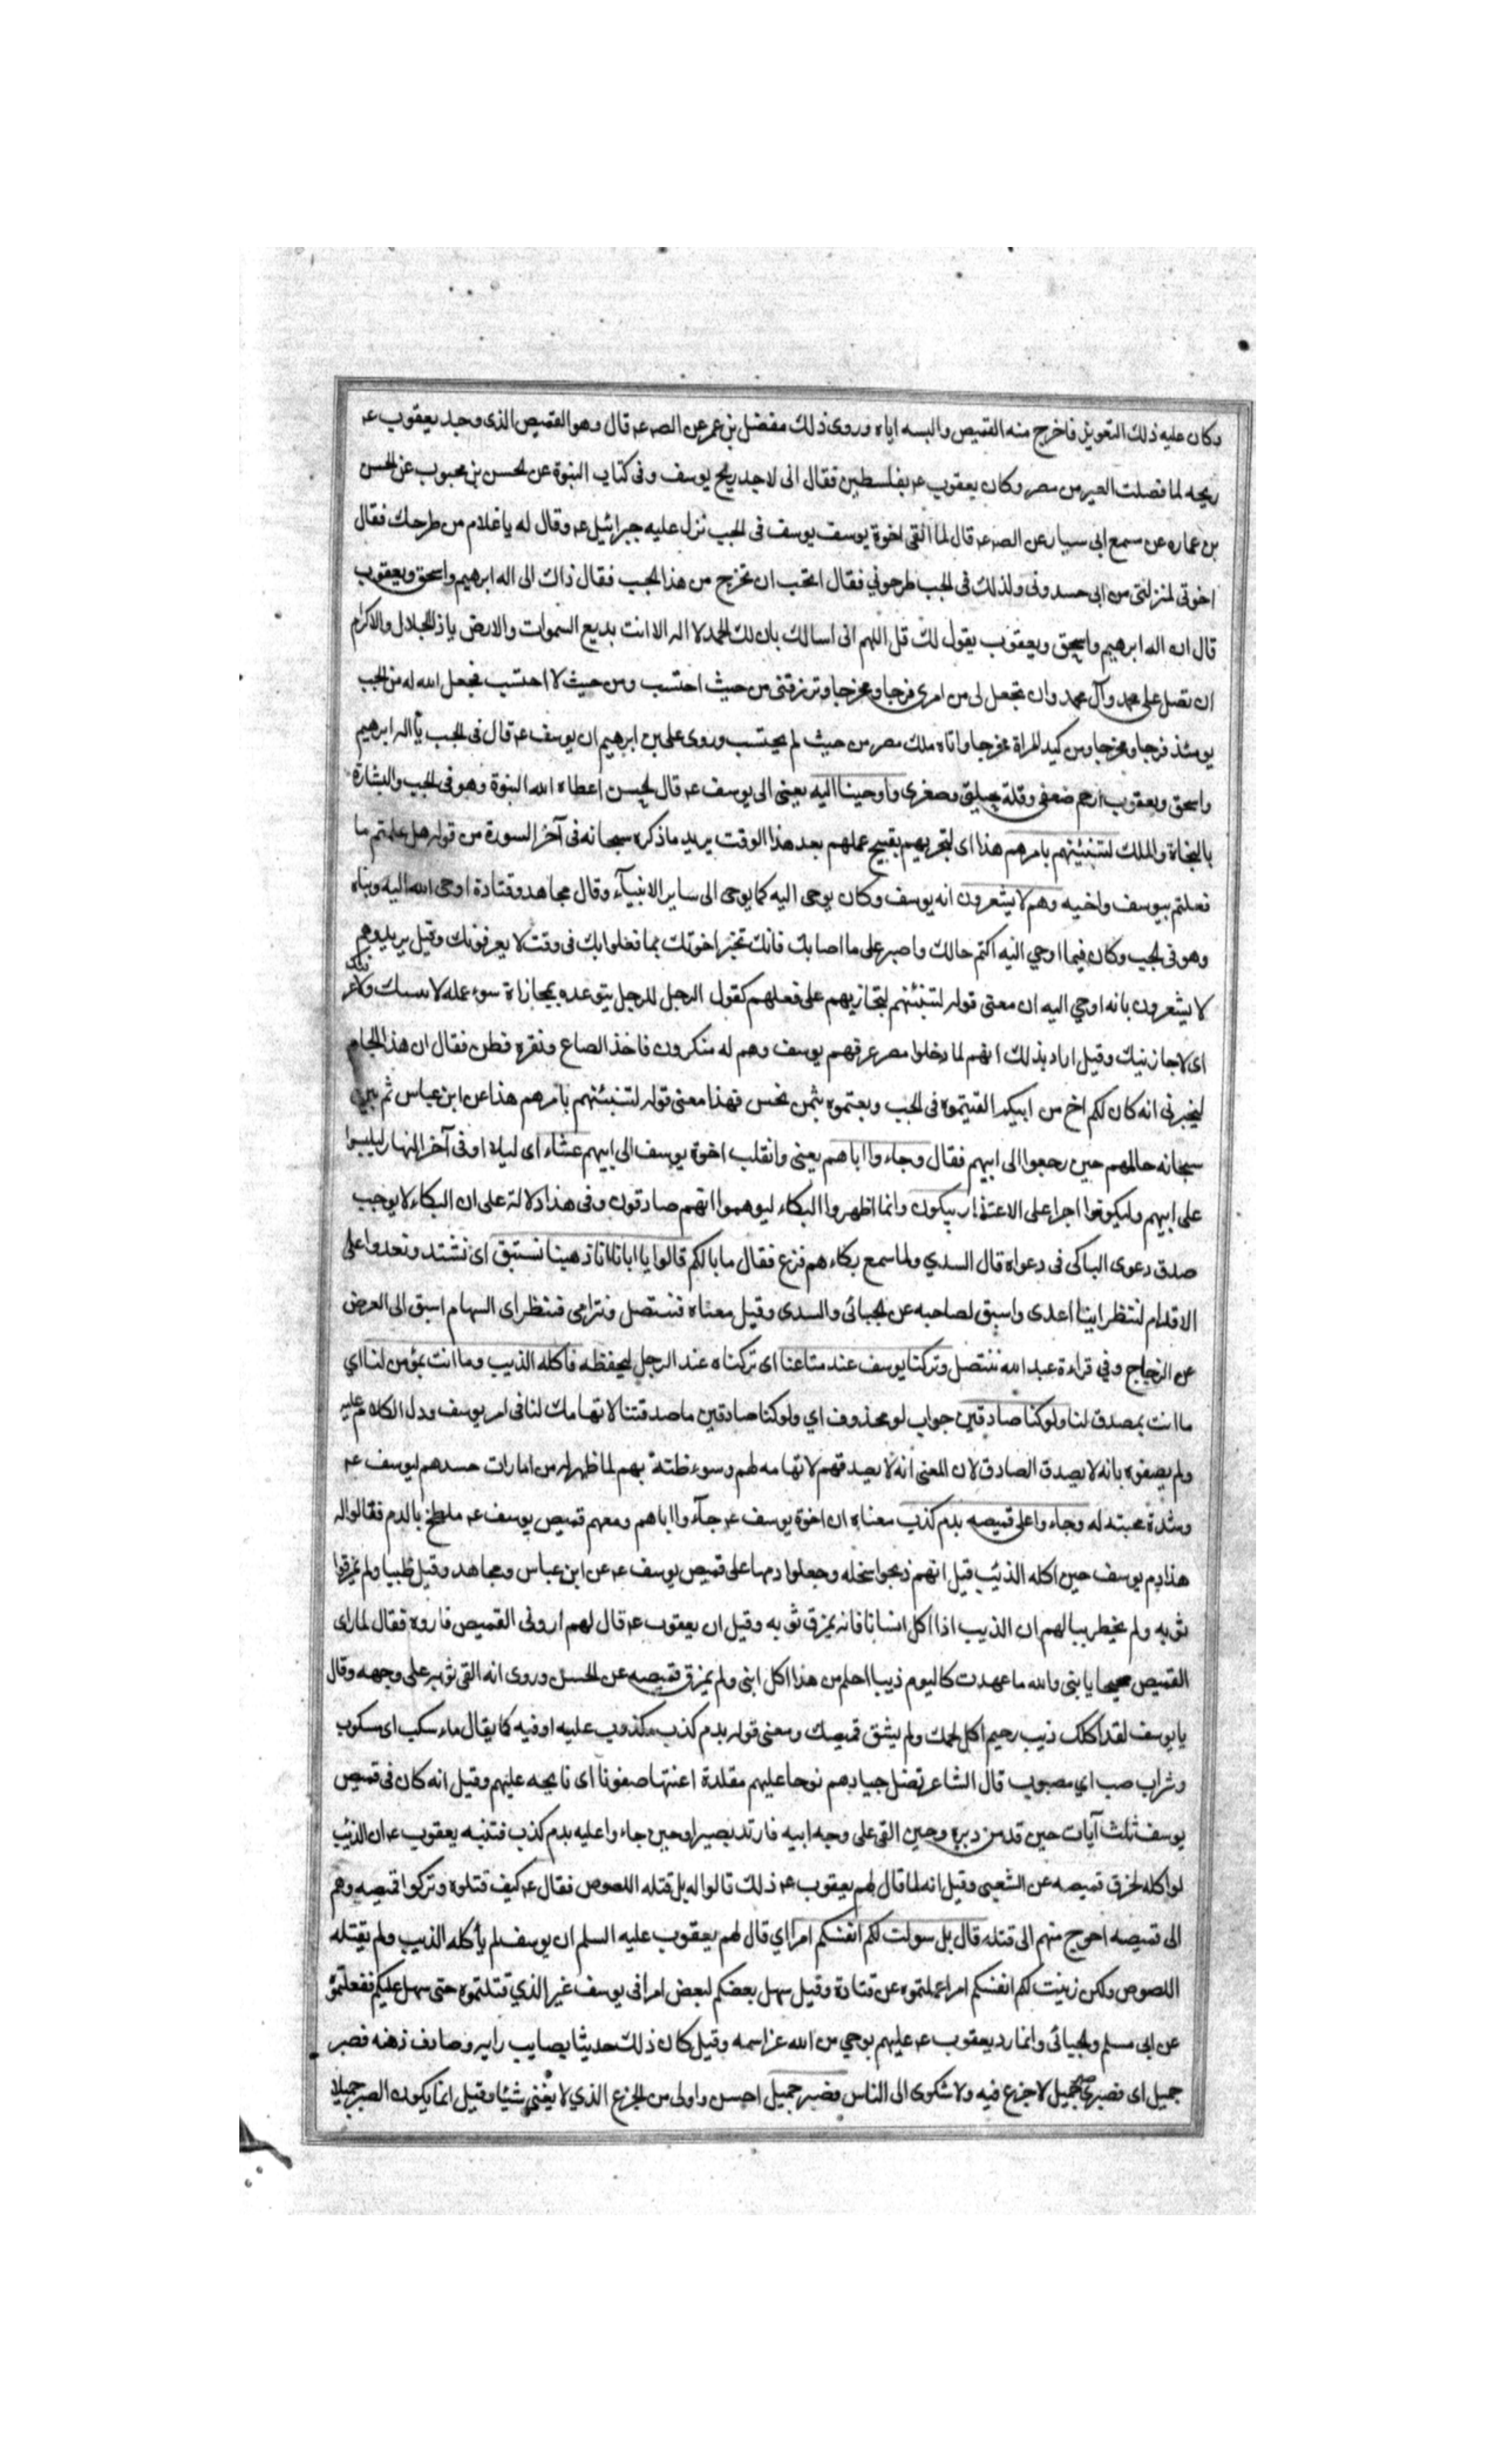 وكان عليه ذلك التعويذ فاخرج منه القميص والبسه اياه وروى ذلك مفضل بن عمر عن الصه عه قال وهو القميص الذى وجد يعقوب عه
ريحه لما فصلت العير من مصر وكان يعقوب عه بفلسطين فقال انى لاجد ريح يوسف وفى كتاب النبوة عن الحسن بن محبوب عن الحسن
بن عماره عن سمع ابى سيار عن الصه عه قال لما القى اخوة يوسف يوسف فى الجب نزل عليه جبرائيل عه وقال له يا غلام من طرحك فقال
اخوتى لمنزلتى من ابى حسدونى ولذلك فى الجب طرحوني فقال اتحب ان تخرج من هذا الجب فقال ذاك الى اله ابرهيم واسحق ويعقوب
قال ان اله ابرهيم واسحق ويعقوب يقول لك قل اللهم انى اسالك بان لك الحمد لا اله الا انت بديع السموات والارض يا ذا الجلال والاكرام
ان تصل على محمد وآل محمد وان تجعل لى من امرى فرجا ومخرجا وترزقنى من حيث احتسب ومن حيث لا احتسب فجعل الله له من الجب
يومئذ فرجا ومخرجا ومن كيد المراة مخرجا واتاه ملك مصر من حيث لم يحتسب وروى على بن ابرهيم ان يوسف عه قال فى الجب يا اله ابرهيم
واسحق ويعقوب ارحم ضعفى وقلة حيلتى وصغرى واوحينا اليه يعنى الى يوسف عه قال الحسن اعطاه الله النبوة وهو فى الجب والبشارة
بالنجاة والملك لتنبئنهم بامرهم هذا اى لتخبرنهم بقبيح عملهم بعد هذا الوقت يريد ما ذكره سبحانه فى آخر السورة من قوله هل علمتم ما
فعلتم بيوسف واخيه وهم لا يشعرون انه يوسف وكان يوحى اليه كما يوحى الى ساير الانبيآء وقال مجاهد وقتادة اوحى الله اليه ونباه
وهو فى الجب وكان فيما اوحي اليه اكتم حالك واصبر على ما اصابك فانك تخبر اخوتك بما فعلوا بك فى وقت لا يعرفونك وقيل يريد وهم
لا يشعرون بانه اوحي اليه ان معنى قوله لتنبئنهم لتجازيهم على فعلهم كقول الرجل للرجل يتوعده بمجازاة سوء عمله
اى لاجازينك وقيل اراد بذلك انهم لما دخلوا مصر عرفهم يوسف وهم له منكرون فاخذ الصاع ونقره فطن فقال ان هذا الجام
ليخبرنى انه كان لكم اخ من ابيكم القيتموه فى الجب وبعتموه بثمن بخس فهذا معنى قوله لتنبئنهم بامرهم هذا عن ابن عباس ثم بين
سبحانه حالهم حين رجعوا الى ابيهم فقال وجاءوا اباهم يعنى وانقلب اخوة يوسف الى ابيهم عشاء اى ليلا او فى آخر النهار ليلبسوا
على ابيهم وليكونوا اجراء على الاعتذار يبكون وانما اظهروا البكاء ليوهموا انهم صادقون وفى هذا دلالة على ان البكاء لا يوجب
صدق دعوى الباكى فى دعواه قال السدي ولما سمع بكاءهم فزع فقال ما بالكم قالوا يا ابانا انا ذهبنا نستبق اى نشتد ونعدوا على
الاقدام لننظر اينا اعدى واسبق لصاحبه عن الجبائى والسدى وقيل معناه ننتضل ونترامى فننظر اى السهام اسبق الى الغرض
عن الزجاج وفي قراءة عبد الله ننتضل وتركنا يوسف عند متاعنا اى تركناه عند الرحل ليحفظه فاكله الذيب وما انت بمؤمن لنا اي
ما انت بمصدق لنا ولو كنا صادقين جواب لو محذوف اي ولو كنا صادقين ما صدقتنا لاتهامك لنا فى امر يوسف ودل الكلام عليه
ولم يصفوه بانه لا يصدق الصادق لان المعنى انه لا يصدقهم لاتهامه لهم وسوء ظنه بهم لما ظهر له من امارات حسدهم ليوسف عه
وشدة محبته له وجاءوا على قميصه بدم كذب معناه ان اخوة يوسف عه جآءوا اباهم ومعهم قميص يوسف عه ملطخ بالدم فقالوا له
هذا دم يوسف حين اكله الذئب قيل انهم ذبحوا سخله وجعلوا دمها على قميص يوسف عه عن ابن عباس ومجاهد وقيل ظبيا ولم يمزقوا
ثوبه ولم يخطر ببالهم ان الذيب اذا اكل انسانا فانه يمزق ثوبه وقيل ان يعقوب عه قال لهم ارونى القميص فاروه فقال لما راى
القميص صحيحا يا بنى والله ما عهدت كاليوم ذيبا احلم من هذا اكل ابنى ولم يمزق قميصه عن الحسن وروى انه القى ثوبه على وجهه وقال
يا يوسف لقد اكلك ذيب رحيم اكل لحمك ولم يشق قميصك ومعنى قوله بدم كذب مكذوب عليه او فيه كما يقال ماء سكب اى مسكوب
وشراب صب اي مصبوب قال الشاعر تضل جيادهم نوحا عليهم مقلدة اعنتها صفونا اى نايحه عليهم وقيل انه كان فى قميص
يوسف ثلث آيات حين قد من دبره وحين القى على وجه ابيه فارتد بصيرا وحين جاءوا عليه بدم كذب فتنبه يعقوب عه ان الذئب
لو اكله لخرق قميصه عن الشعبى وقيل انه لما قال لهم يعقوب عه ذلك قالوا له بل قتله اللصوص فقال عه كيف قتلوه وتركوا قميصه وهم
الى قميصه احوج منهم الى قتله قال بل سولت لكم انفسكم امرا اي قال لهم يعقوب عليه السلم ان يوسف لم يأكله الذيب ولم يقتله
اللصوص ولكن زينت لكم انفسكم امرا عملتموه عن قتادة وقيل سهل بعضكم لبعض امرا فى يوسف غير الذي قتلتموه حتى سهل عليكم ففعلتموه
عن ابى مسلم والجبائى وانما رد يعقوب عه عليهم بوحي من الله عز اسمه وقيل كان ذلك حديثا بصايب رايه وصادف ذهنه فصبر
جميل اى فصبرى صبر جميل لا جزع فيه ولا شكوى الى الناس فصبر جميل احسن واولى من الجزع الذي لا يغنى شيئا وقيل انما يكون الصبر جميلا